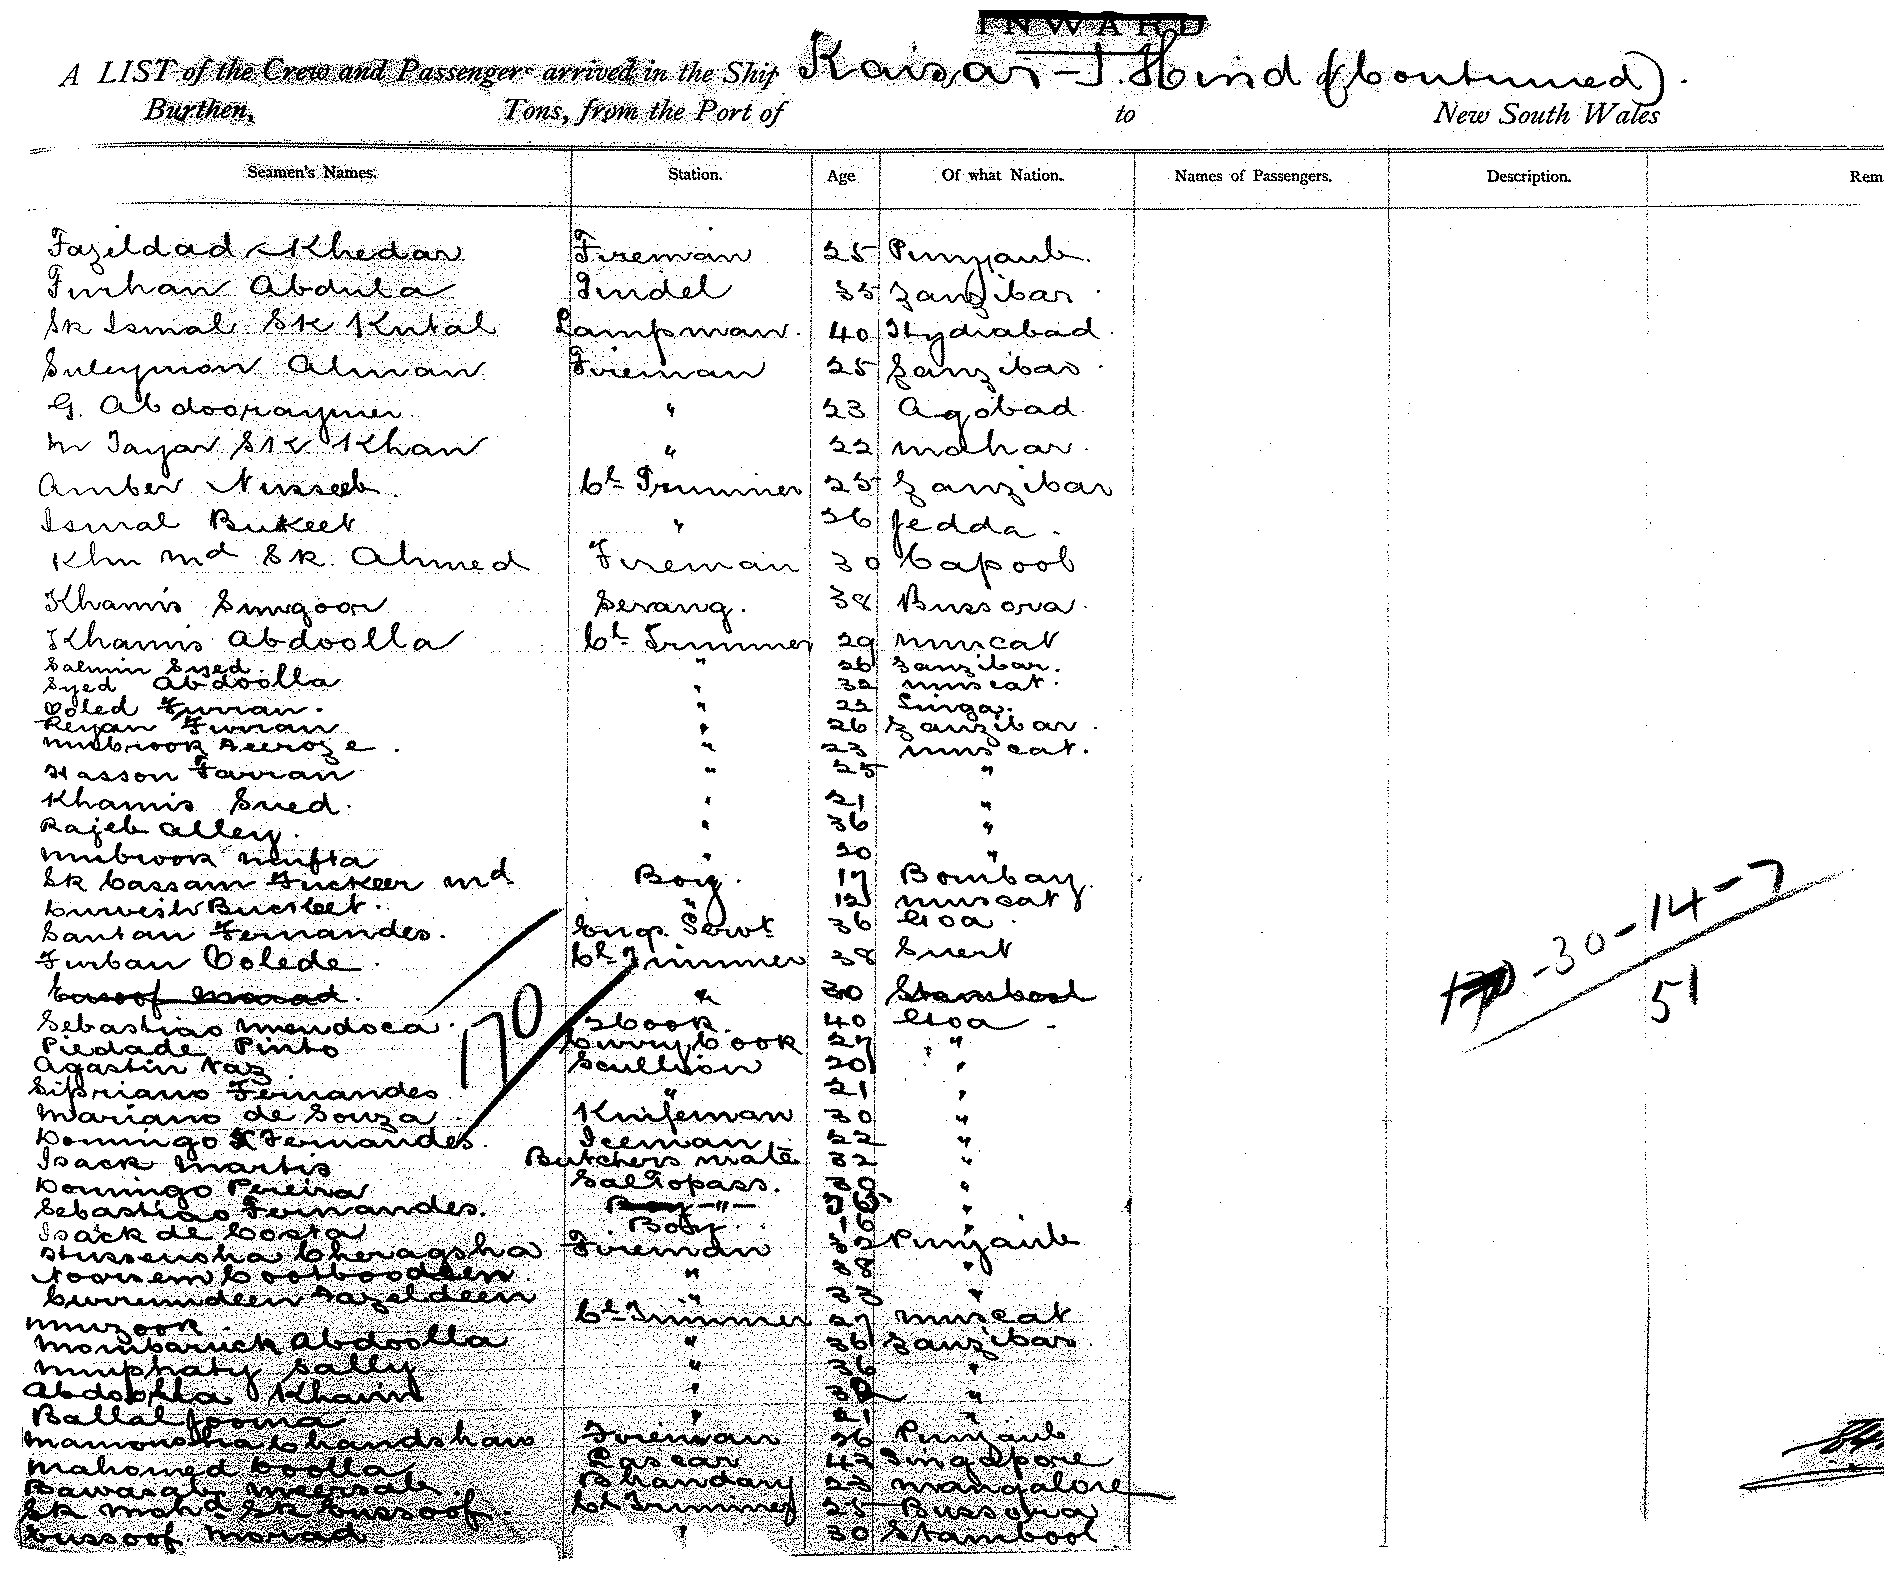 INWARD
A LIST of the Crew and Passengers arrived in the Ship Kaisar-I-Hind (Continued).
Burthen, Tons, from the Port of to New South Wales
Seamen's Names. Station. Age Of what Nation. Names of Passengers. Description. Rem
Fazildad Khedar Fireman 25 Punjaub.
Furhan Abdula Tindel 35 Zanzibar
Sk Ismal Sk Kutal Lampman. 40 Hydrabad.
Suleymon Alman Fireman 25 Zanzibar
G. Abdooraymer " 23 Agobad
M Tayar SK Khan " 22 Mahar.
Amber Nusseeb. Cl Trimmer 25 Zanzibar
Ismal Bukeet " 26 Jedda.
Khn Md Sk. Ahmed Fireman 30 Capool
Khamis Sungoor Serang. 38 Bussora
Khamis Abdoolla Cl Trimmer 29 Muscat
Salmin Syed. " 26 Zanzibar.
Syed Abdoolla " 32 Muscat.
Coled Furran. " 22 Linga.
Reyan Furran " 26 Zanzibar.
Mubrook Feeroze. " 23 Muscat.
Hasson Farran " 25 "
Khamis Sued. " 21 "
Rajeb Alley. " 36 "
Mubrook Mufta " 20 "
Sk Cassam Fuckeer Md Boy. 17 Bombay.
Burket. " Muscat
Santan Fernandes. Eng. Servt 36 Goa.
Furban Colede. Cl Trimmer 38 Suert
Eusoof Morad. " 30 Stambool
Sebastiao Mendoca. 2 Cook. 40 Goa.
Piedade Pinto Curry Cook 27 "
Agastin Vaz. Scullion 20 "
Sipriano Fernandes " 21 "
Mariano de Souza Knifeman 30 "
Domingo Fernandes. Iceman 22 "
Isack Martis Butchers Mate 32 "
Domingo Pereira Sal Topass. 30 "
Sebastiao Fernandes. Boy -"- "
Isack de Costa Boy. 16 "
Hussensha Cheragsha Fireman 32 Punjaub
Noorsem Cootboodeen " 38 "
Curremdeen Fazeldeen " 33 "
Muzook. Cl Trimmer 27 Muscat
Mombaruck Abdoolla " 26 Zanzibar.
Muphaty Sally " 36 "
Abdoolla Khamis " "
Ballal Jooma " 21 "
Mamonsha Chandshaw Fireman 26 Punjaub
Mahomed Doolla Lascar 42 Singapore
Bawasab Meersab. Bhandary 22 Mangalore
Sk Mohd Sk Eussoof Cl Trimmer 25 Bussora
Eussoof Morad " 30 Stambool
170
170-30-14-7
51